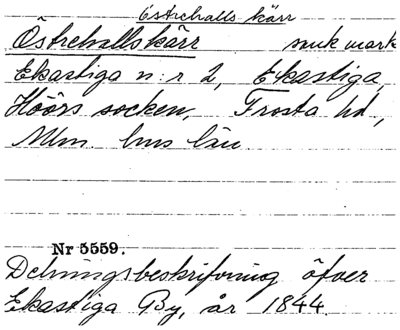 Östrehalls kärr
Östrehallskärr sank mark
Ekastiga n:r 2, Ekastiga,
Höörs socken, Frosta hd,
Mlm. hus län
Nr 5559.
Delningsbeskrifvning öfver
Ekastiga By, år 1844.